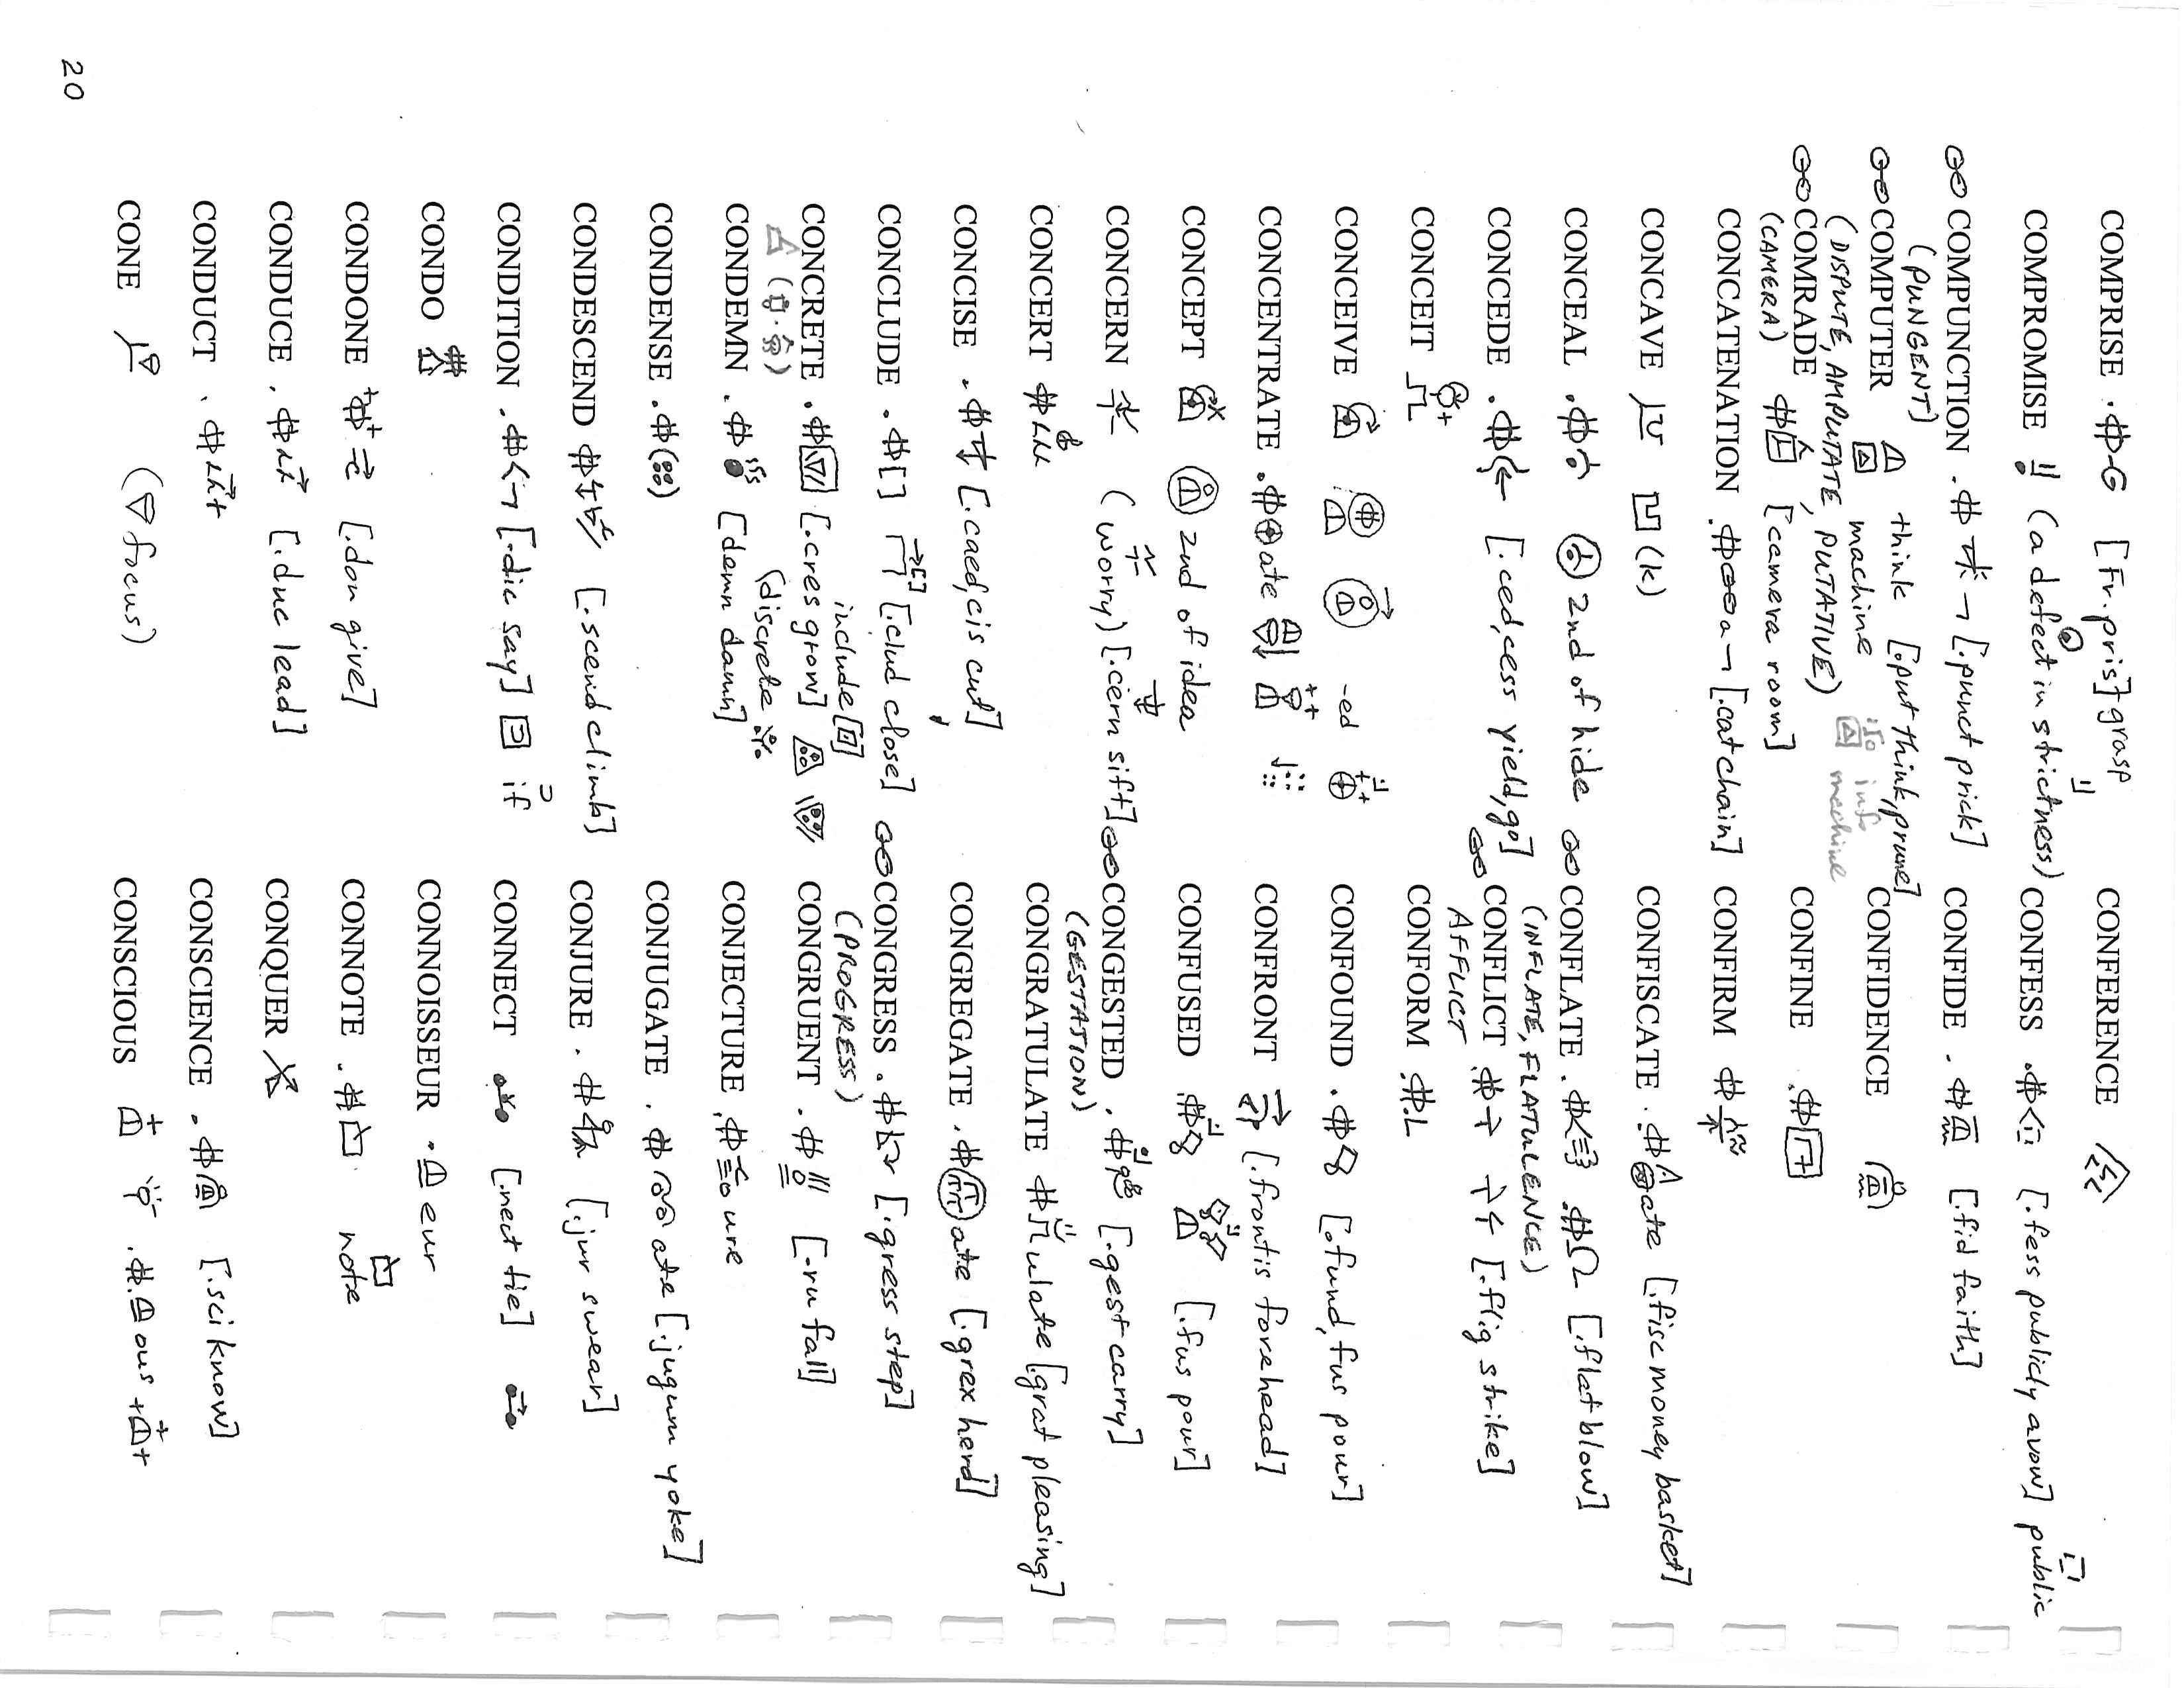 COMPRISE [Fr. pris] grasp
COMPROMISE (a defect in strictness)
COMPUNCTION [.punct prick]
(PUNGENT)
COMPUTER think [.put think, prune]
machine info machine
(DISPUTE, AMPUTATE, PUTATIVE)
COMRADE [camera room]
(CAMERA)
CONCATENATION [.cat chain]
CONCAVE (k)
CONCEAL 2nd of hide
CONCEDE [.ced, cess yield, go]
CONCEIT
CONCEIVE -ed
CONCENTRATE ate
CONCEPT 2nd of idea
CONCERN (worry) [.cern sift]
CONCERT
CONCISE [.caed, cis cut]
CONCLUDE [.clud close]
include
CONCRETE [.cres grow]
(discrete
CONDEMN [demn damn]
CONDENSE
CONDESCEND [.scend climb]
CONDITION [.dic say] if
CONDO
CONDONE [.don give]
CONDUCE [.duc lead]
CONDUCT
CONE (focus)
CONFERENCE
CONFESS [.fess publicly avow] public
CONFIDE [.fid faith]
CONFIDENCE
CONFINE
CONFIRM
CONFISCATE ate [.fisc money basket]
CONFLATE [.flat blow]
(INFLATE, FLATULENCE)
CONFLICT [.flig strike]
AFFLICT
CONFORM
CONFOUND [.fund, fus pour]
CONFRONT [.frontis forehead]
CONFUSED [.fus pour]
CONGESTED [.gest carry]
(GESTATION)
CONGRATULATE ulate [grat pleasing]
CONGREGATE ate [.grex herd]
CONGRESS [.gress step]
(PROGRESS)
CONGRUENT [.ru fall]
CONJECTURE ure
CONJUGATE ate [.jugum yoke]
CONJURE [.jur swear]
CONNECT [.nect tie]
CONNOISSEUR eur
CONNOTE note
CONQUER
CONSCIENCE [.sci know]
CONSCIOUS ous
20